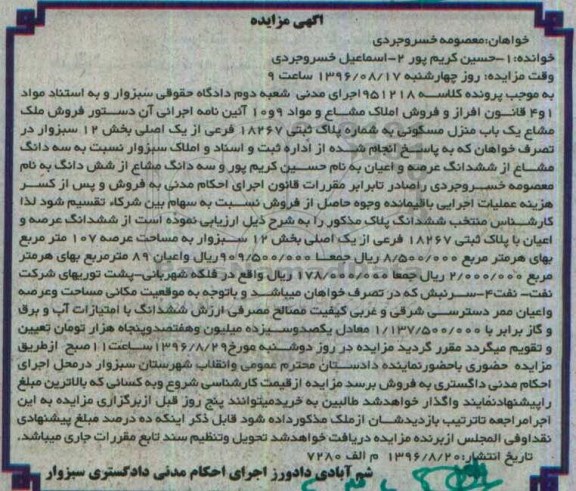 آگهی مزایده
خواهان:معصومه خسروجردی
خوانده:۱-حسین کریم پور ۲-اسماعیل خسروجردی
وقت مزایده: روز چهارشنبه ۱۳۹۶/۰۸/۱۷ ساعت ۹
به موجب پرونده کلاسه ۹۵۱۲۱۸اجرای مدنی شعبه دوم دادگاه حقوقی سبزوار و به استناد مواد
۱و۴ قانون افراز و فروش املاک مشاع و مواد ۹و۱۰ آئین نامه اجرائی آن دستور فروش ملک
مشاع یک باب منزل مسکونی به شماره پلاک ثبتی ۱۸۲۶۷ فرعی از یک اصلی بخش ۱۲ سبزوار در
تصرف خواهان که به پاسخ انجام شده از اداره ثبت و اسناد و املاک سبزوار نسبت به سه دانگ
مشاع از ششدانگ عرصه و اعیان به نام حسین کریم پور و سه دانگ مشاع از شش دانگ به نام
معصومه خسروجردی راصادر تابرابر مقررات قانون اجرای احکام مدنی به فروش و پس از کسر
هزینه عملیات اجرایی باقیمانده وجوه حاصل از فروش نسبت به سهام بین شرکاء تقسیم شود لذا
کارشناس منتخب ششدانگ پلاک مذکور را به شرح ذیل ارزیابی نموده است از ششدانگ عرصه و
اعیان با پلاک ثبتی ۱۸۲۶۷ فرعی از یک اصلی بخش ۱۲ سبزوار به مساحت عرصه ۱۰۷ متر مربع
بهای هرمتر مربع ۸/۵۰۰/۰۰۰ ریال جمعا ۹۰۹/۵۰۰/۰۰۰ریال واعیان ۸۹ مترمربع بهای هرمتر
مربع ۲/۰۰۰/۰۰۰ ریال جمعا ۱۷۸/۰۰۰/۰۰۰ ریال واقع در فلکه شهربانی-پشت توربهای شرکت
نفت- نفت۴-سرنبش که در تصرف خواهان میباشد و باتوجه به موقعیت مکانی مساحت وعرصه
واعیان ممر دسترسی شرقی و غربی کیفیت مصالح مصرفی ارزش ششدانگ با امتیازات آب و برق
و گاز برابر با ۱/۱۳۷/۵۰۰/۰۰۰ معادل یکصدوسیزده میلیون وهفتصدوپنجاه هزار تومان تعیین
و تقویم میگردد مقرر گردید مزایده در روز دوشنبه مورخ۱۳۹۶/۸/۲۹ساعت۱۱صبح ازطریق
مزایده حضوری باحضورنماینده دادستان محترم عمومی وانقلاب شهرستان سبزوار درمحل اجرای
احکام مدنی دادگستری به فروش برسد مزایده ازقیمت کارشناسی شروع وبه کسانی که بالاترین مبلغ
راپیشنهادنمایند واگذار خواهدشد طالبین به خریدمیتوانند پنج روز قبل ازبرگزاری مزایده به این
اجرامراجعه تاترتیب بازدیدشان ازملک مذکورداده شود قابل ذکر اینکه ده درصد مبلغ پیشنهادی
نقداوفی المجلس ازبرنده مزایده دریافت خواهدشد تحویل وتنظیم سند تابع مقررات جاری میباشد.
تاریخ انتشار:۱۳۹۶/۸/۲۰ م الف ۷۲۸۰
شم آبادی دادورز اجرای احکام مدنی دادگستری سبزوار